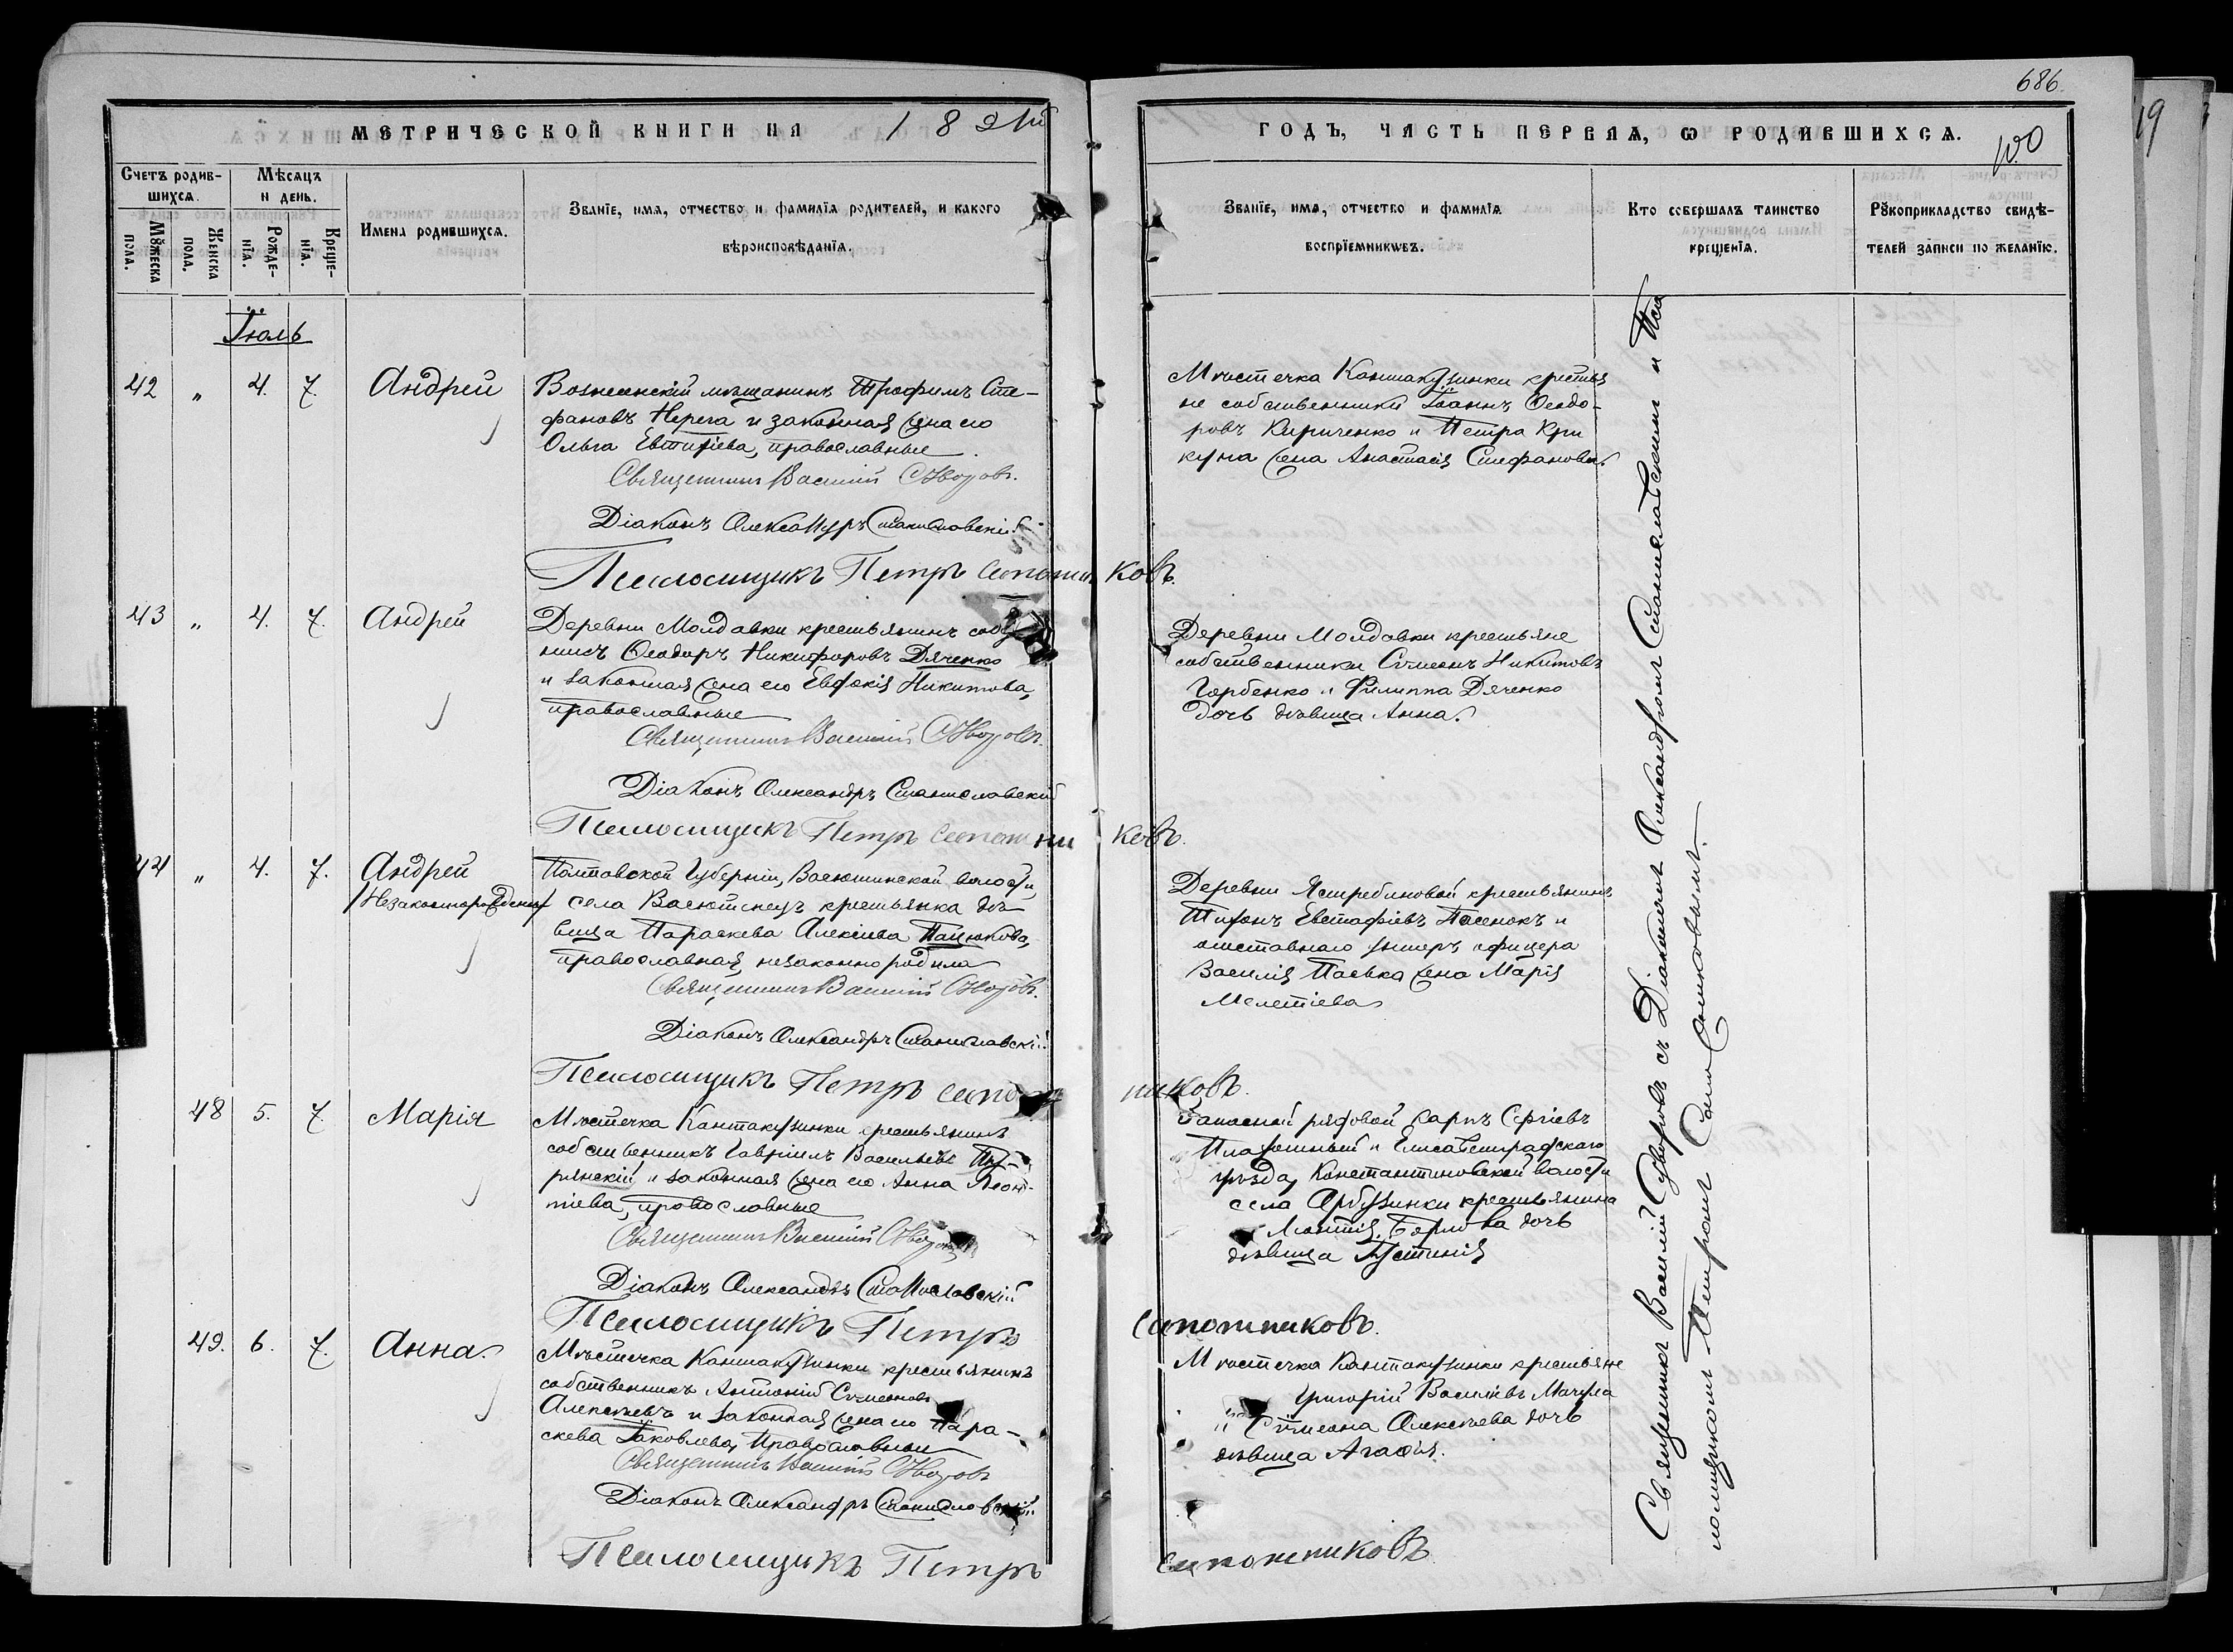 686.
19
МЕТРИЧЕСКОЙ КНИГИ НА 18
ГОДЪ, ЧАСТЬ ПЕРВАЯ, Ѡ РОДИВШИХСЯ.
Счетъ родив-
шихся.
Мꙋжеска
пола.
Женска
пола.
Мѣсяцъ
и день.
Рожде-
нія.
Креще-
нія.
Имена родившихся.
Званіе, имя, отчество и фамилія родителей, и какого
вѣроисповѣданія.
Званіе, имя, отчество и фамилія
воспріемникѡвъ.
Кто совершалъ таинство
крещенія.
Рꙋкоприкладство свидѣ-
телей записи по желанію.
Іюль
42 " 4. 7. Андрей
Вознесенскій мѣщанинъ Трофимъ Сте-
фановъ Нерега и законная жена его
Ольга Евтихіева, православные
Священникъ Василій Суворовъ.
Діаконъ Александръ Станиславскій
Псаломщикъ Петръ Сапожниковъ.
Мѣстечка Кантакузинки крестья
не собственники Іоаннъ Ѳеодо-
ровъ Кириченко и Петра Кри
куна жена Анастасія Стефанова.
43 " 4. 7. Андрей
Деревни Молдавки крестьянинъ собст
никъ Ѳеодоръ Никифоровъ Дяченко
и законная жена его Евдокія Никитова,
православные
Священникъ Василій Суворовъ.
Діаконъ Александръ Станиславскій
Псаломщикъ Петръ Сапожниковъ.
Деревни Молдавки крестьяне
собственники Сѵмеонъ Никитовъ
Горбенко и Филиппа Дяченко
дочь дѣвица Анна.
44 " 4. 7. Андрей
/Незаконнорожденный/
Полтавской Губерніи, Васютинской волости,
села Васютинецъ крестьянка дѣ
вица Параскева Алексіева Пацюкова,
православная, незаконно родила
Священникъ Василій Суворовъ.
Діаконъ Александръ Станиславскій
Псаломщикъ Петръ Сапожниковъ.
Деревни Ястребиновой крестьянинъ
Тихонъ Евстафіевъ Пасенокъ и
отставнаго унтеръ офицера
Василія Паська жена Марія
Мелетіева
48 5. 7. Марія
Мѣстечка Кантакузинки крестьянинъ
собственникъ Гавріилъ Васильевъ
рянскій и законная жена его Анна Леон-
тіева, православные
Священникъ Василій Суворовъ
Діаконъ Александръ Станиславскій
Псаломщикъ Петръ Сапожниковъ.
Запасной рядовой Карпъ Сергіевъ
и Елисаветградскаго
уѣзда, Константиновской волости
села Арбузинки крестьянина
Леонтія дочь
дѣвица Іустинія
49. 6. 7. Анна.
Мѣстечка Кантакузинки крестьянинъ
собственникъ Антоній Сѵмеоновъ
Алексѣевъ и законная жена его Пара-
скева Іаковлева, Православные
Священникъ Василій Суворовъ
Діаконъ Александръ Станиславскій
Псаломщикъ Петръ Сапожниковъ
Мѣстечка Кантакузинки крестьяне
Григорій Василіевъ Мачула
и Сѵмеона Алексѣева дочь
дѣвица Агаѳія.
Священникъ Василій Суворовъ съ Діакономъ Александромъ Станиславскимъ и Пса
ломщикомъ Петромъ Сапожниковымъ.